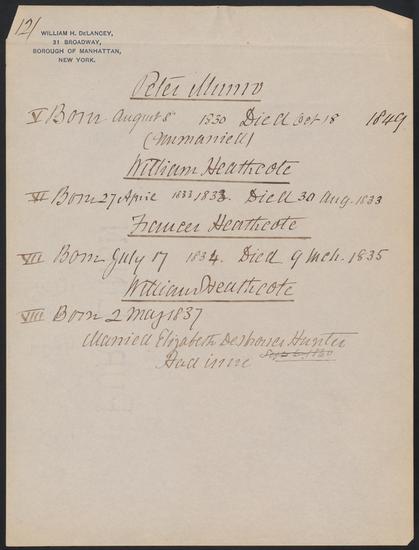 12/
WILLIAM H. DELANCEY,
31 BROADWAY,
BOROUGH OF MANHATTAN,
NEW YORK.
Peter Munro
V Born August 8 1830 Died Oct 18 1849
(Unmarried)
William Heathcote
VI Born 27 April 1833 1833. Died 30 Aug. 1833
Frances Heathcote
VII Born July 17 1834. Died 9 Mch. 1835
William Heathcote
VIII Born 2 May 1837
Married Elizabeth Hunter
Had issue